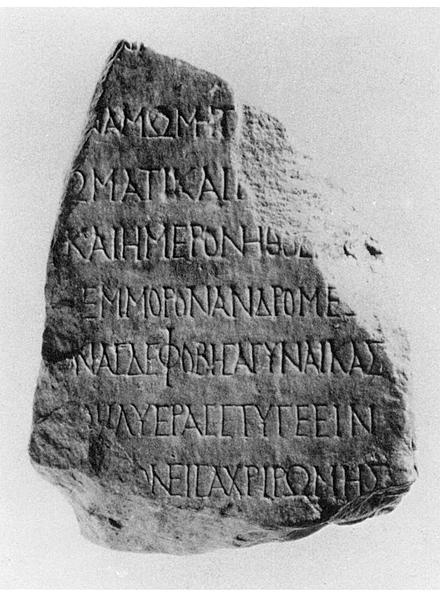 ΑΜΩΜΗΤ
ΩΜΑΤΙΚΑΙ
ΚΑΙΗΜΕΡΟΝΗΘΟΣ
ΕΜΜΟΡΟΝΑΝΔΡΟΜΕ
ΝΑΣΔΕΦΟΒΗΣΑΓΥΝΑΙΚΑΣ
ΛΥΕΡΑΣΣΤΥΓΕΕΙΝ
ΟΝΕΙΣΑΧΡΙΡΩΜΗΣ